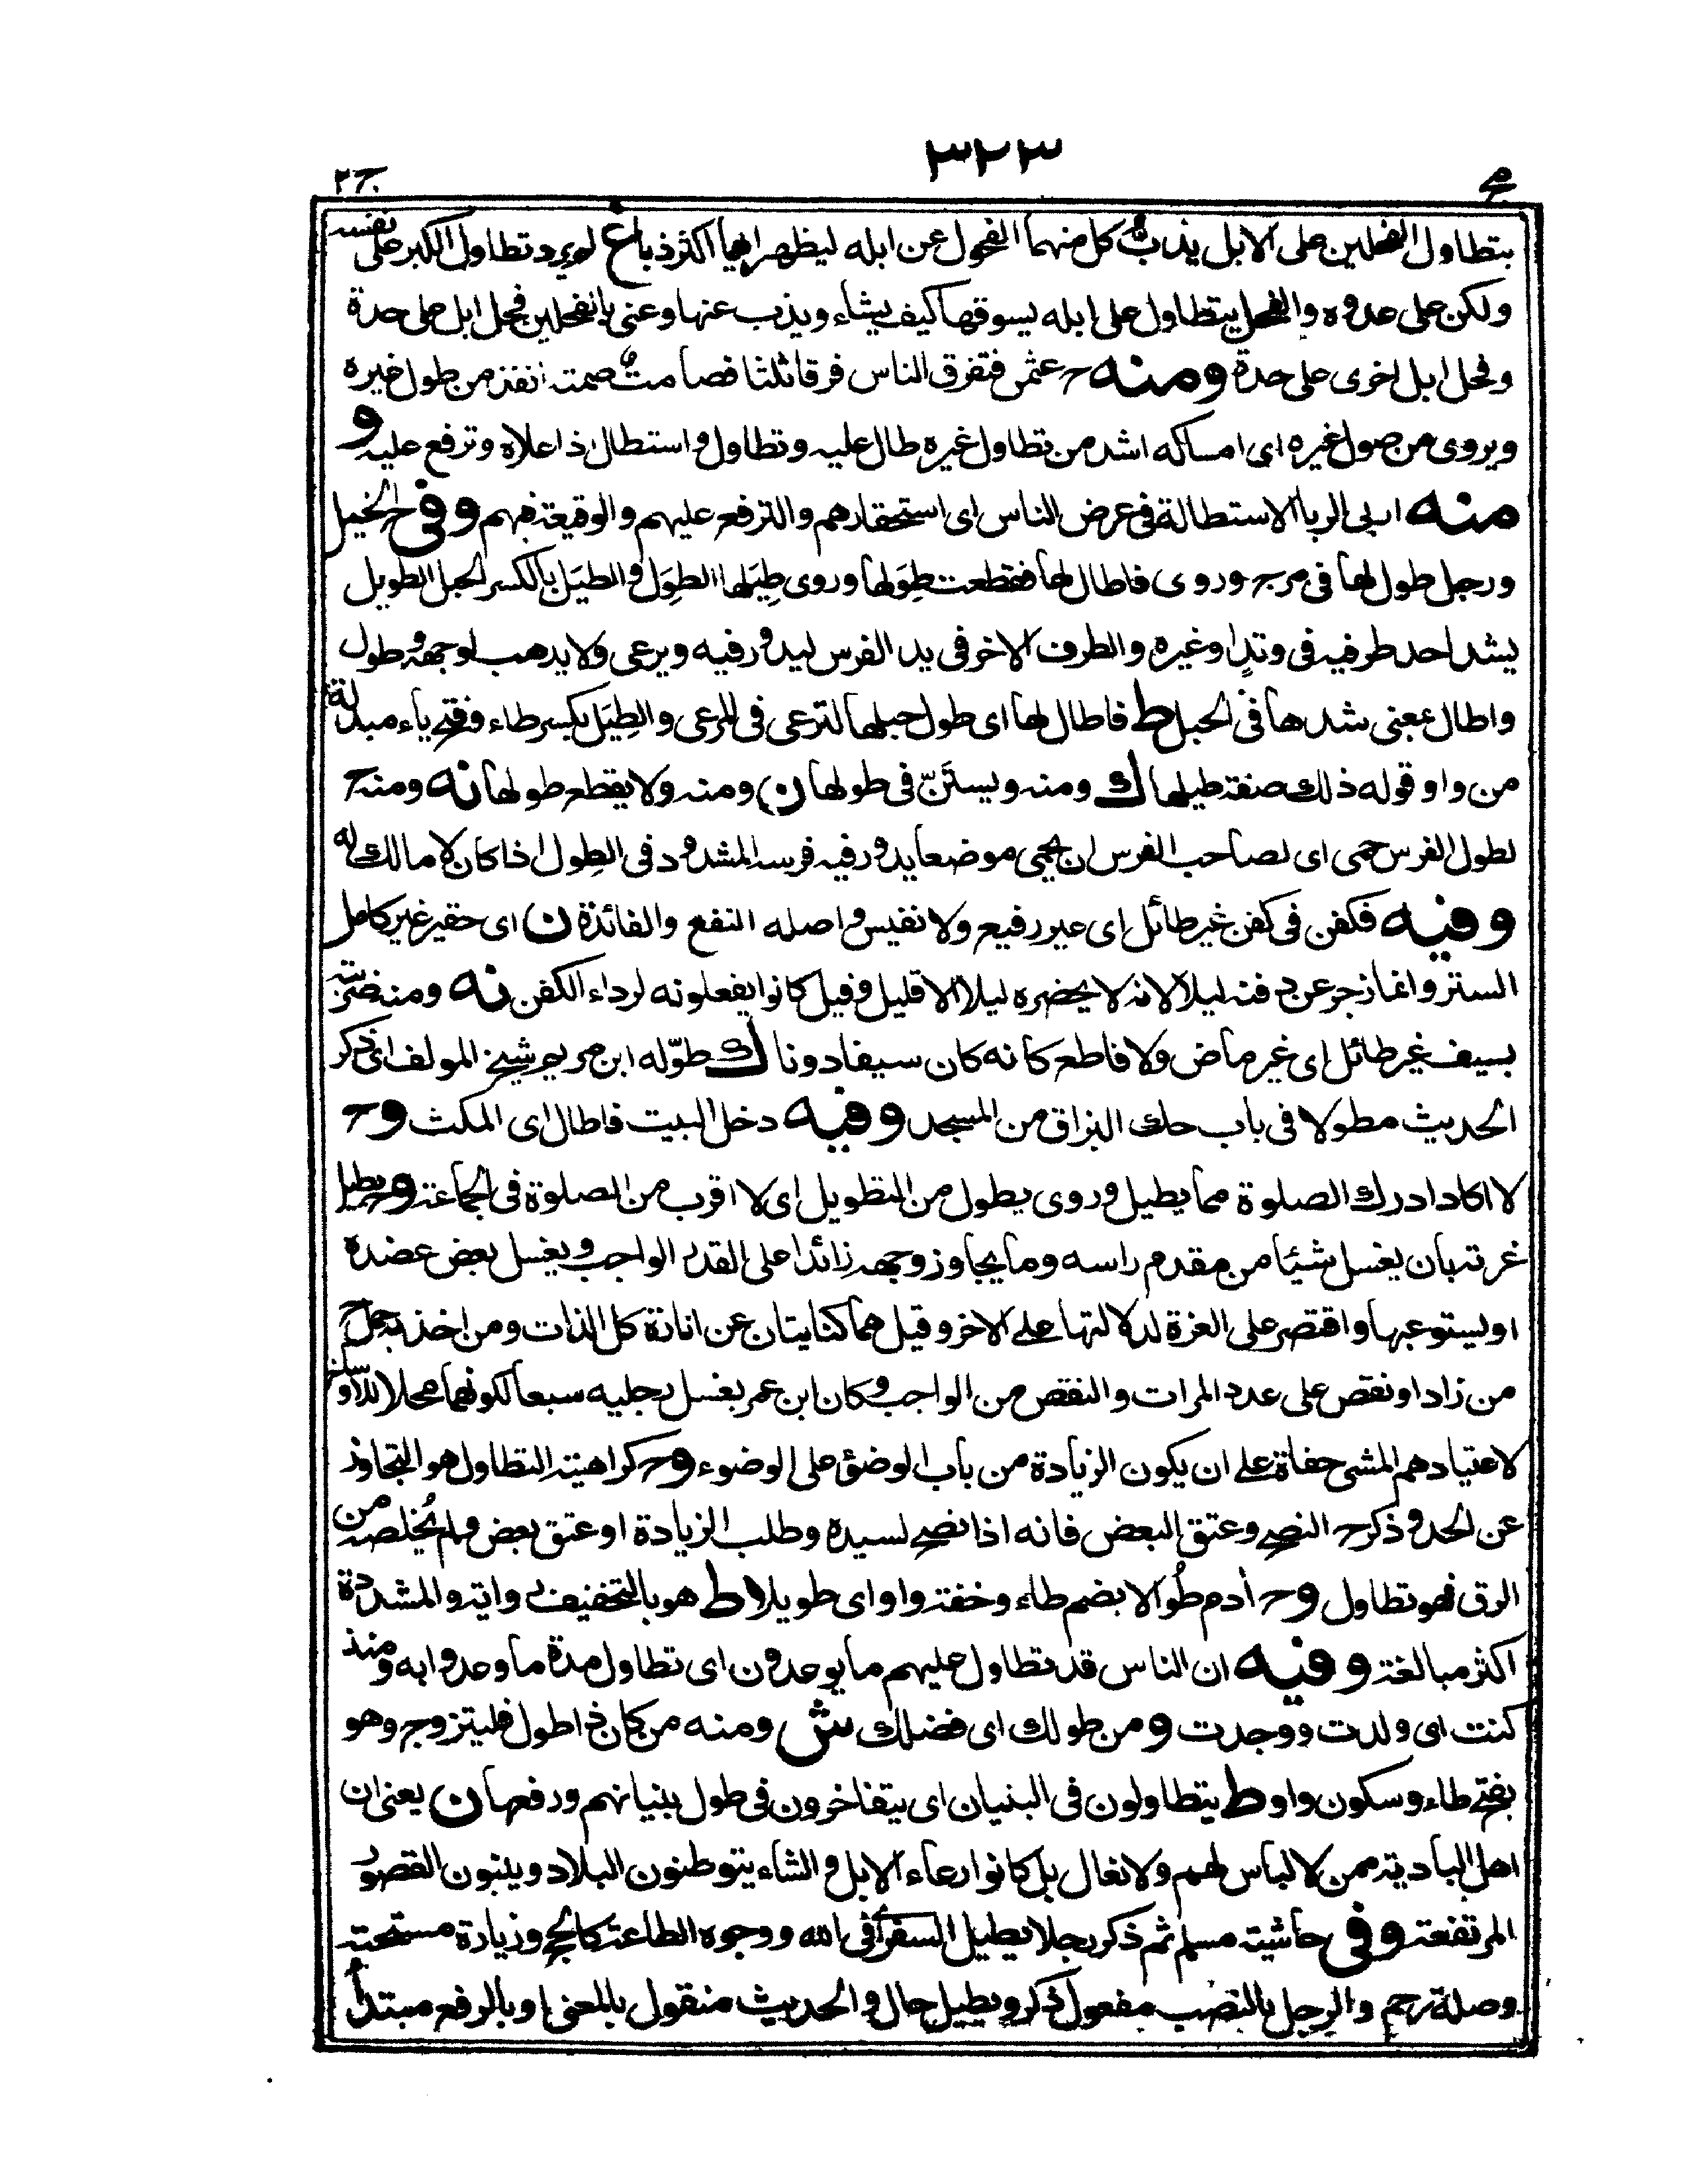 ٣٢٣
مح
ج٢
بتطاول الفحلين على الابل يذبّ كل منهما الفحول عن ابله ليظهر ايهما اكثر ذبا غ لم يرد تطاول الكبر على نفسه
ولكن على عدوه والفحل يتطاول على ابله يسوقها كيف يشاء ويذب عنها وعنى بالفحلين فحل ابل على حدة
وفحل ابل اخرى على حدة ومنه ح عثمن فتفرق الناس فرقا ثلثا فصامتٌ صمته انفذ من طول غيره
ويروى من صول غيره اى امساكه اشد من تطاول غيره طال عليه وتطاول واستطال اذا علاه وترفع عليه و
منه اربى الربا الاستطالة فى عرض الناس اى استحقارهم والترفع عليهم والوقيعة فيهم وفى ح الخيل
ورجل طول لها فى مرج وروى فاطال لها فقطعت طِوَلها وروى طِيَلها الطِوَل والطيَل بالكسر الحبل الطويل
يشد احد طرفيه فى وتدٍ او غيره والطرف الاخر فى يد الفرس ليدور فيه ويرعى ولا يذهب لوجهه وطول
واطال بمعنى شدها فى الحبل ط فاطال لها اى طول حبلها لترعى فى المرعى والطِيَل بكسر طاء وفتح ياء مبدلة
من واو قوله ذلك صفة طيلها ك ومنه ويستَنّ فى طولها ن ومنه ولا يقطع طولها نه ومنه ح
لطول الفرس حمى اى لصاحب الفرس ان يحمى موضعا يدور فيه فرسه المشدود فى الطِول اذا كان لا مالك له
وفيه فكفن فى كفن غير طائل اى غير رفيع ولا نفيس واصله النفع والفائدة ن اى حقير غير كامل
الستر وانما زجر عن دفنه ليلا لانه لا يحضره ليلا الا قليل وقيل كانوا يفعلونه لرداء الكفن نه ومنه ضربته
بسيف غير طائل اى غير ماض ولا قاطع كانه كان سيفا دونا ك طوّله ابن مريم شيخ المولف اى ذكر
الحديث مطولا فى باب حك البزاق من المسجد وفيه دخل البيت فاطال اى المكث وح
لا اكاد ادرك الصلوة مما يطيل وروى يطول من التطويل اى لا اقرب من الصلوة فى الجماعة وح يطيل
غرته بان يغسل شيئا من مقدم راسه وما يجاوز وجهه زائدا على القدر الواجب ويغسل بعض عضده
او يستوعبها واقتصر على الغرة لدلالتها على الاخر وقيل هما كنايتان عن انارة كل الذات ومن اخذ به حمل ح
من زاد او نقص على عدد المرات والنقص من الواجب وكان ابن عمر يغسل رجليه سبعا لكونهما محلا للاوساخ
لاعتيادهم المشى حفاة على ان يكون الزيادة من باب الوضؤ على الوضوء وح كراهية التطاول هو التجاوز
عن الحد وذكر ح النصح وعتق البعض فانه اذا نصح لسيده وطلب الزيادة او عتق بعض ولم يُخلصه من
الرق فهو تطاول وح أدم طُوالا بضم طاء وخفة واو اى طويلا ط هو بالتخفيف واية والمشددة
اكثر مبالغة وفيه ان الناس قد تطاول عليهم ما يوعدون اى تطاول مدة ما وعدوا به ومنذ
كنت اى ولدت ووجدت ومن طولك اى فضلك ش ومنه من كان ذا طول فليتزوج وهو
بفتح طاء وسكون واو ط يتطاولون فى البنيان اى يتفاخرون فى طول بنيانهم ورفعها ن يعنى ان
اهل البادية ممن لا لباس لهم ولا نعال بل كانوا رعاء الابل والشاء يتوطنون البلاد ويبنون القصور
المرتفعة وفى حاشية مسلم ثم ذكر رجلا يطيل السفر اى فى الله ووجوه الطاعة كالحج وزيارة مستحبة
وصلة رحم والرجل بالنصب مفعول ذكر ويطيل حال والحديث منقول بالمعنى او بالرفع مبتدأ